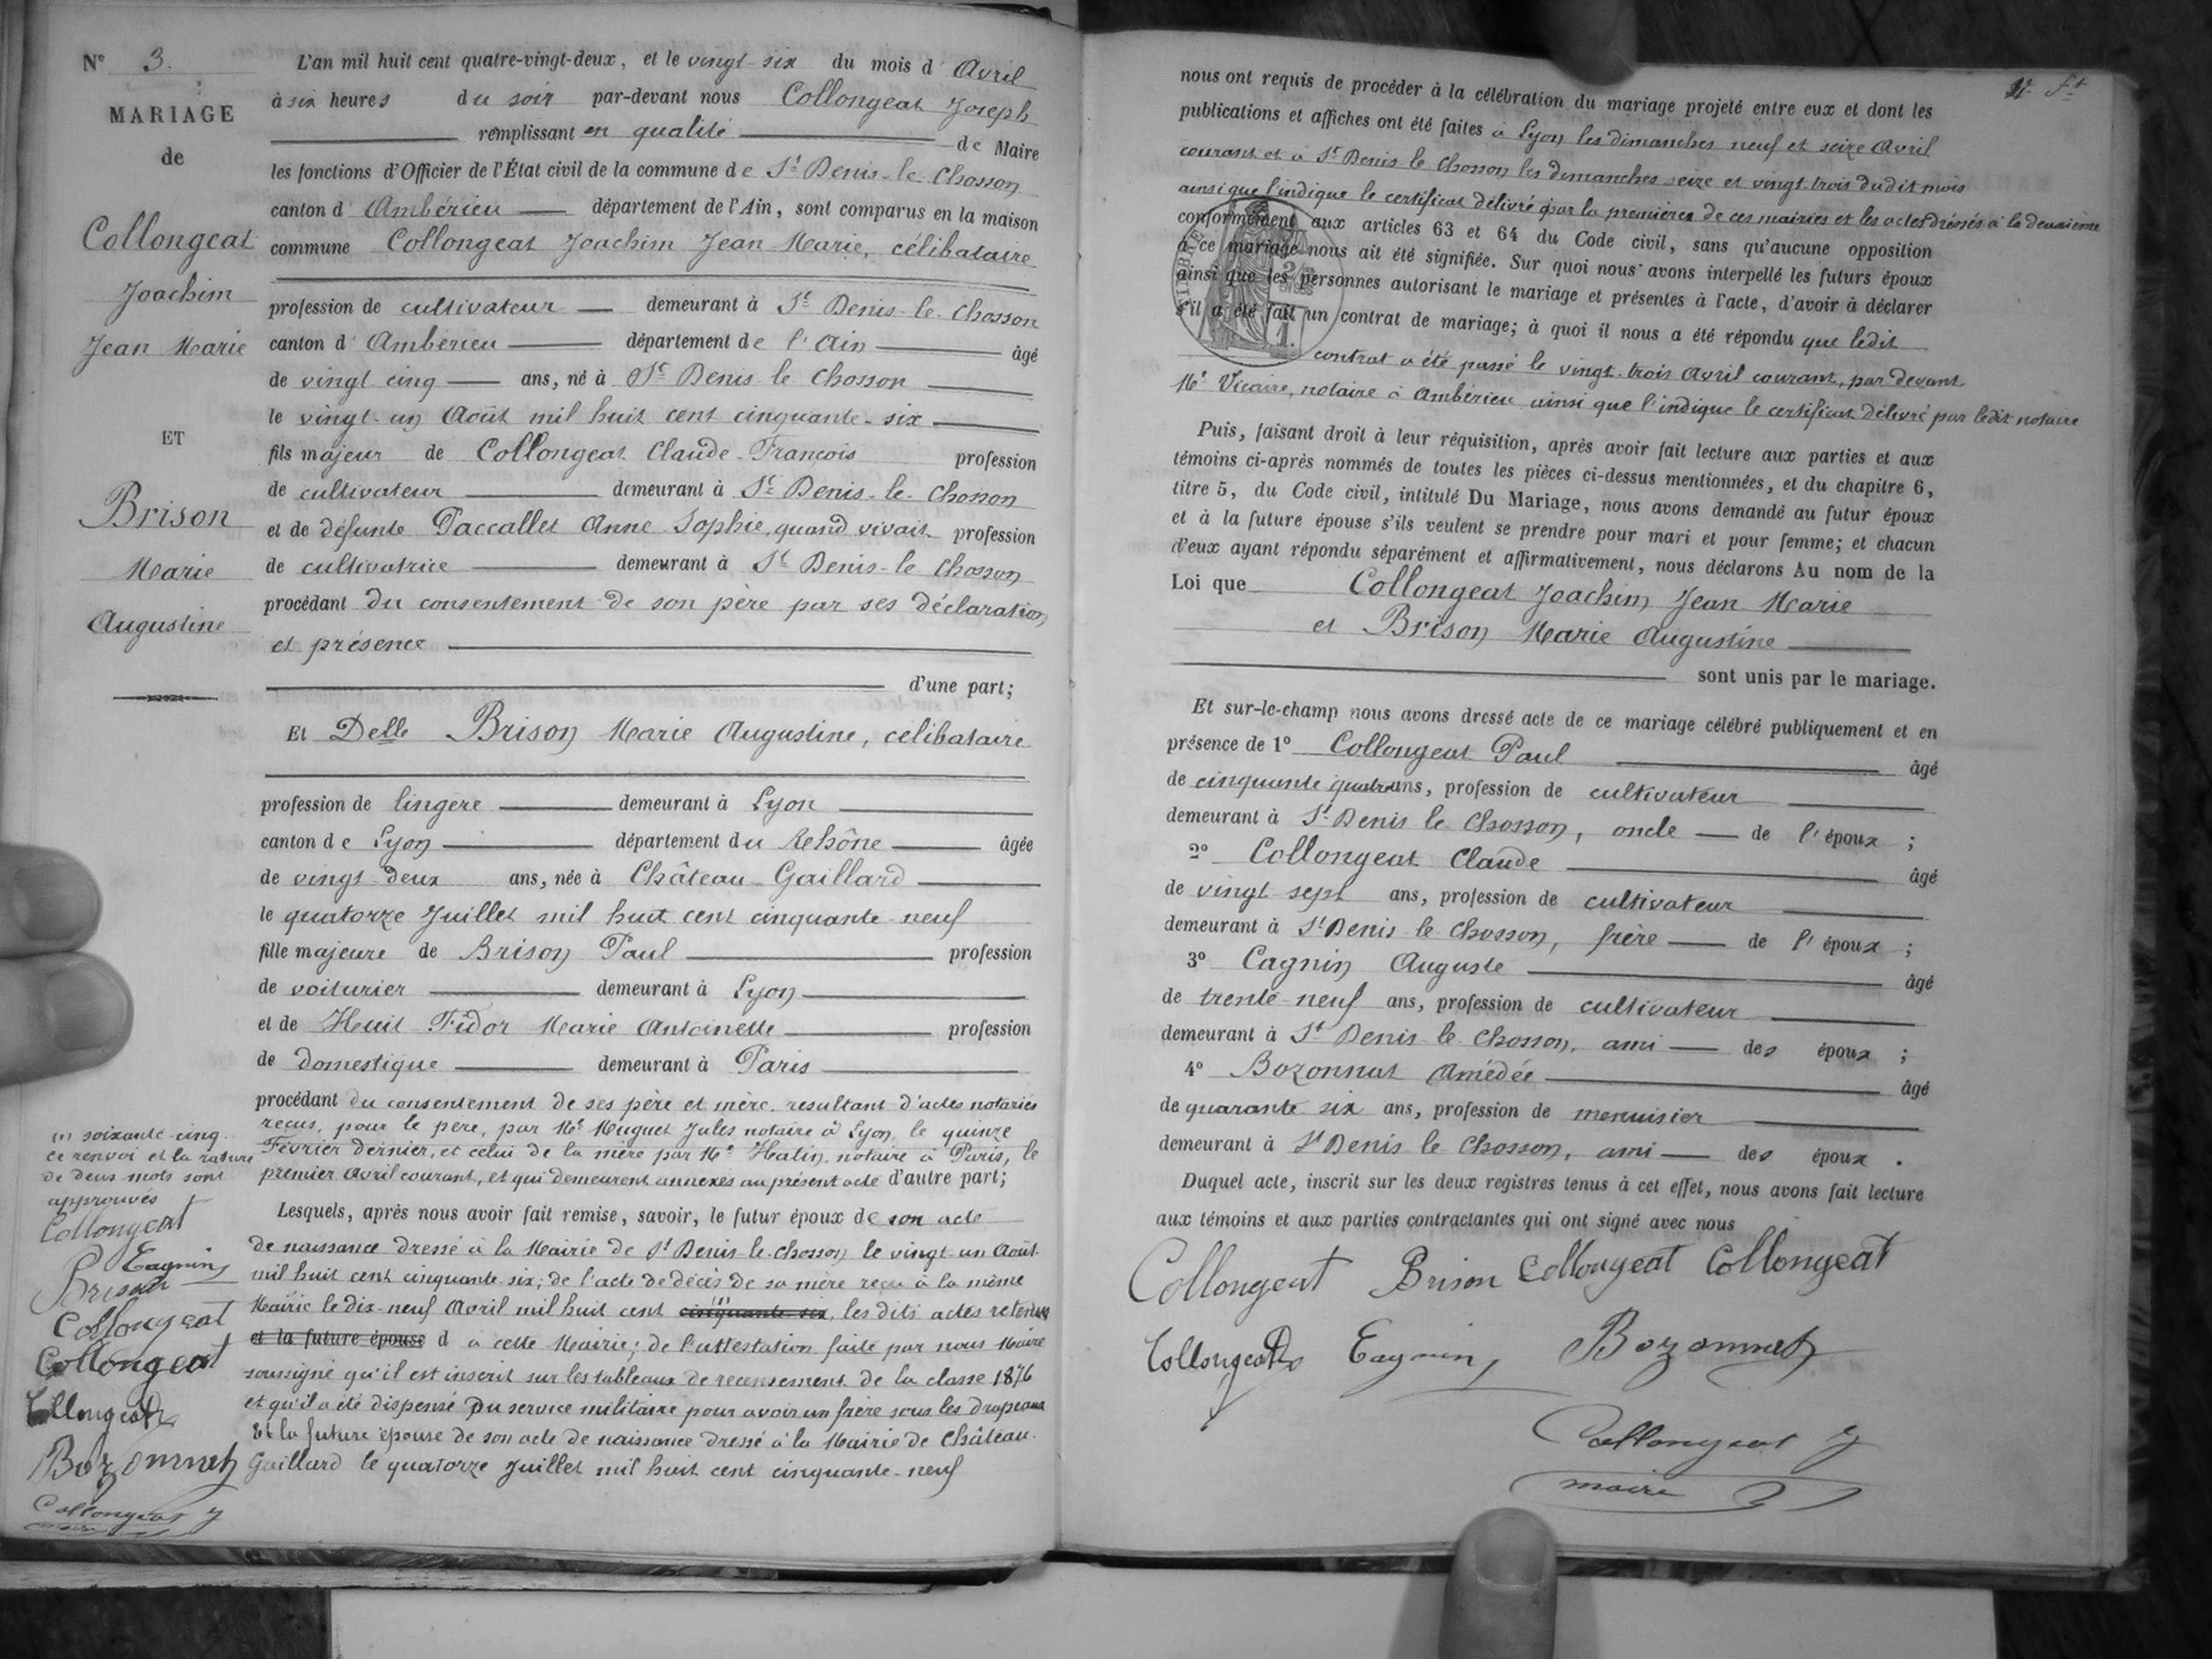 N° 3.
MARIAGE
de
Collongeat
Joachim
Jean Marie
ET
Brison
Marie
Augustine
L'an mil huit cent quatre-vingt-deux, et le vingt-six du mois d'Avril
à six heures du soir par-devant nous Collongeat Joseph
remplissant en qualité de Maire
les fonctions d'Officier de l'État civil de la commune de St Denis-le-Chosson
canton d'Ambérieu département de l'Ain, sont comparus en la maison
commune Collongeat Joachim Jean Marie, célibataire
profession de cultivateur demeurant à St Denis-le-Chosson
canton d'Ambérieu département de l'Ain âgé
de vingt cinq ans, né à St Denis le Chosson
le vingt-un Août mil huit cent cinquante-six
fils majeur de Collongeat Claude-François profession
de cultivateur demeurant à St Denis-le-Chosson
et de défunte Paccallet Anne Sophie, quand vivait profession
de cultivatrice demeurant à St Denis-le Chosson
procédant du consentement de son père par ses déclaration
et présence
d'une part;
Et Delle Brison Marie Augustine, célibataire
profession de lingère demeurant à Lyon
canton de Lyon département du Rhône âgée
de vingt-deux ans, née à Château-Gaillard
le quatorze Juillet mil huit cent cinquante-neuf
fille majeure de Brison Paul profession
de voiturier demeurant à Lyon
et de Huit Fidor Marie Antoinette profession
de domestique demeurant à Paris
procédant du consentement de ses père et mère, resultant d'actes notariés
reçus, pour le père, par Me Muguet Jules notaire à Lyon, le quinze
Février dernier, et celui de la mère par Me Hatin, notaire à Paris, le
premier Avril courant, et qui demeurent annexés au présent acte d'autre part;
Lesquels, après nous avoir fait remise, savoir, le futur époux de son acte
de naissance dressé à la Mairie de St Denis-le-Chosson le vingt-un Août
mil huit cent cinquante-six; de l'acte de décès de sa mère reçu à la même
Mairie le dix-neuf Avril mil huit cent (1) cinquante-six, les dits actes retenus
et la future épouse d à cette Mairie; de l'attestation faite par nous Maire
soussigné qu'il est inscrit sur les tableaux de recensement de la classe 1876
et qu'il a été dispensé du service militaire pour avoir un frère sous les drapeaux
Et la future épouse de son acte de naissance dressé à la Mairie de Château-
Gaillard le quatorze Juillet mil huit cent cinquante-neuf
(1) soixante-cinq
ce renvoi et la rature
de deux mots sont
approuvés
Collongeat
Cagnin
Brison
Collongeat
Collongeat
Collongeat
Bozonnat
Collongeat J
maire
11. ft
nous ont requis de procéder à la célébration du mariage projeté entre eux et dont les
publications et affiches ont été faites à Lyon les dimanches neuf et seize Avril
courant et à St Denis le Chosson les dimanches seize et vingt-trois dudit mois
ainsi que l'indique le certificat délivré par la première de ces mairies et les actes dressés à la deuxième
conformément aux articles 63 et 64 du Code civil, sans qu'aucune opposition
à ce mariage nous ait été signifiée. Sur quoi nous avons interpellé les futurs époux
ainsi que les personnes autorisant le mariage et présentes à l'acte, d'avoir à déclarer
s'il a été fait un contrat de mariage; à quoi il nous a été répondu que ledit
contrat a été passé le vingt-trois Avril courant, par devant
Me Vicaire, notaire à Ambérieu ainsi que l'indique le certificat délivré par ledit notaire
Puis, faisant droit à leur réquisition, après avoir fait lecture aux parties et aux
témoins ci-après nommés de toutes les pièces ci-dessus mentionnées, et du chapitre 6,
titre 5, du Code civil, intitulé Du Mariage, nous avons demandé au futur époux
et à la future épouse s'ils veulent se prendre pour mari et pour femme; et chacun
d'eux ayant répondu séparément et affirmativement, nous déclarons Au nom de la
Loi que Collongeat Joachim Jean Marie
et Brison Marie Augustine
sont unis par le mariage.
Et sur-le-champ nous avons dressé acte de ce mariage célébré publiquement et en
présence de 1° Collongeat Paul âgé
de cinquante quatre ans, profession de cultivateur
demeurant à St Denis le Chosson, oncle de l'époux;
2° Collongeat Claude âgé
de vingt-sept ans, profession de cultivateur
demeurant à St Denis-le Chosson, frère de l'époux;
3° Cagnin Auguste âgé
de trente-neuf ans, profession de cultivateur
demeurant à St Denis le Chosson, ami des époux;
4° Bozonnat Amédée âgé
de quarante six ans, profession de menuisier
demeurant à St Denis le Chosson, ami des époux.
Duquel acte, inscrit sur les deux registres tenus à cet effet, nous avons fait lecture
aux témoins et aux parties contractantes qui ont signé avec nous
Collongeat Brison Collongeat Collongeat
Collongeat Cagnin Bozonnat
Collongeat J
maire